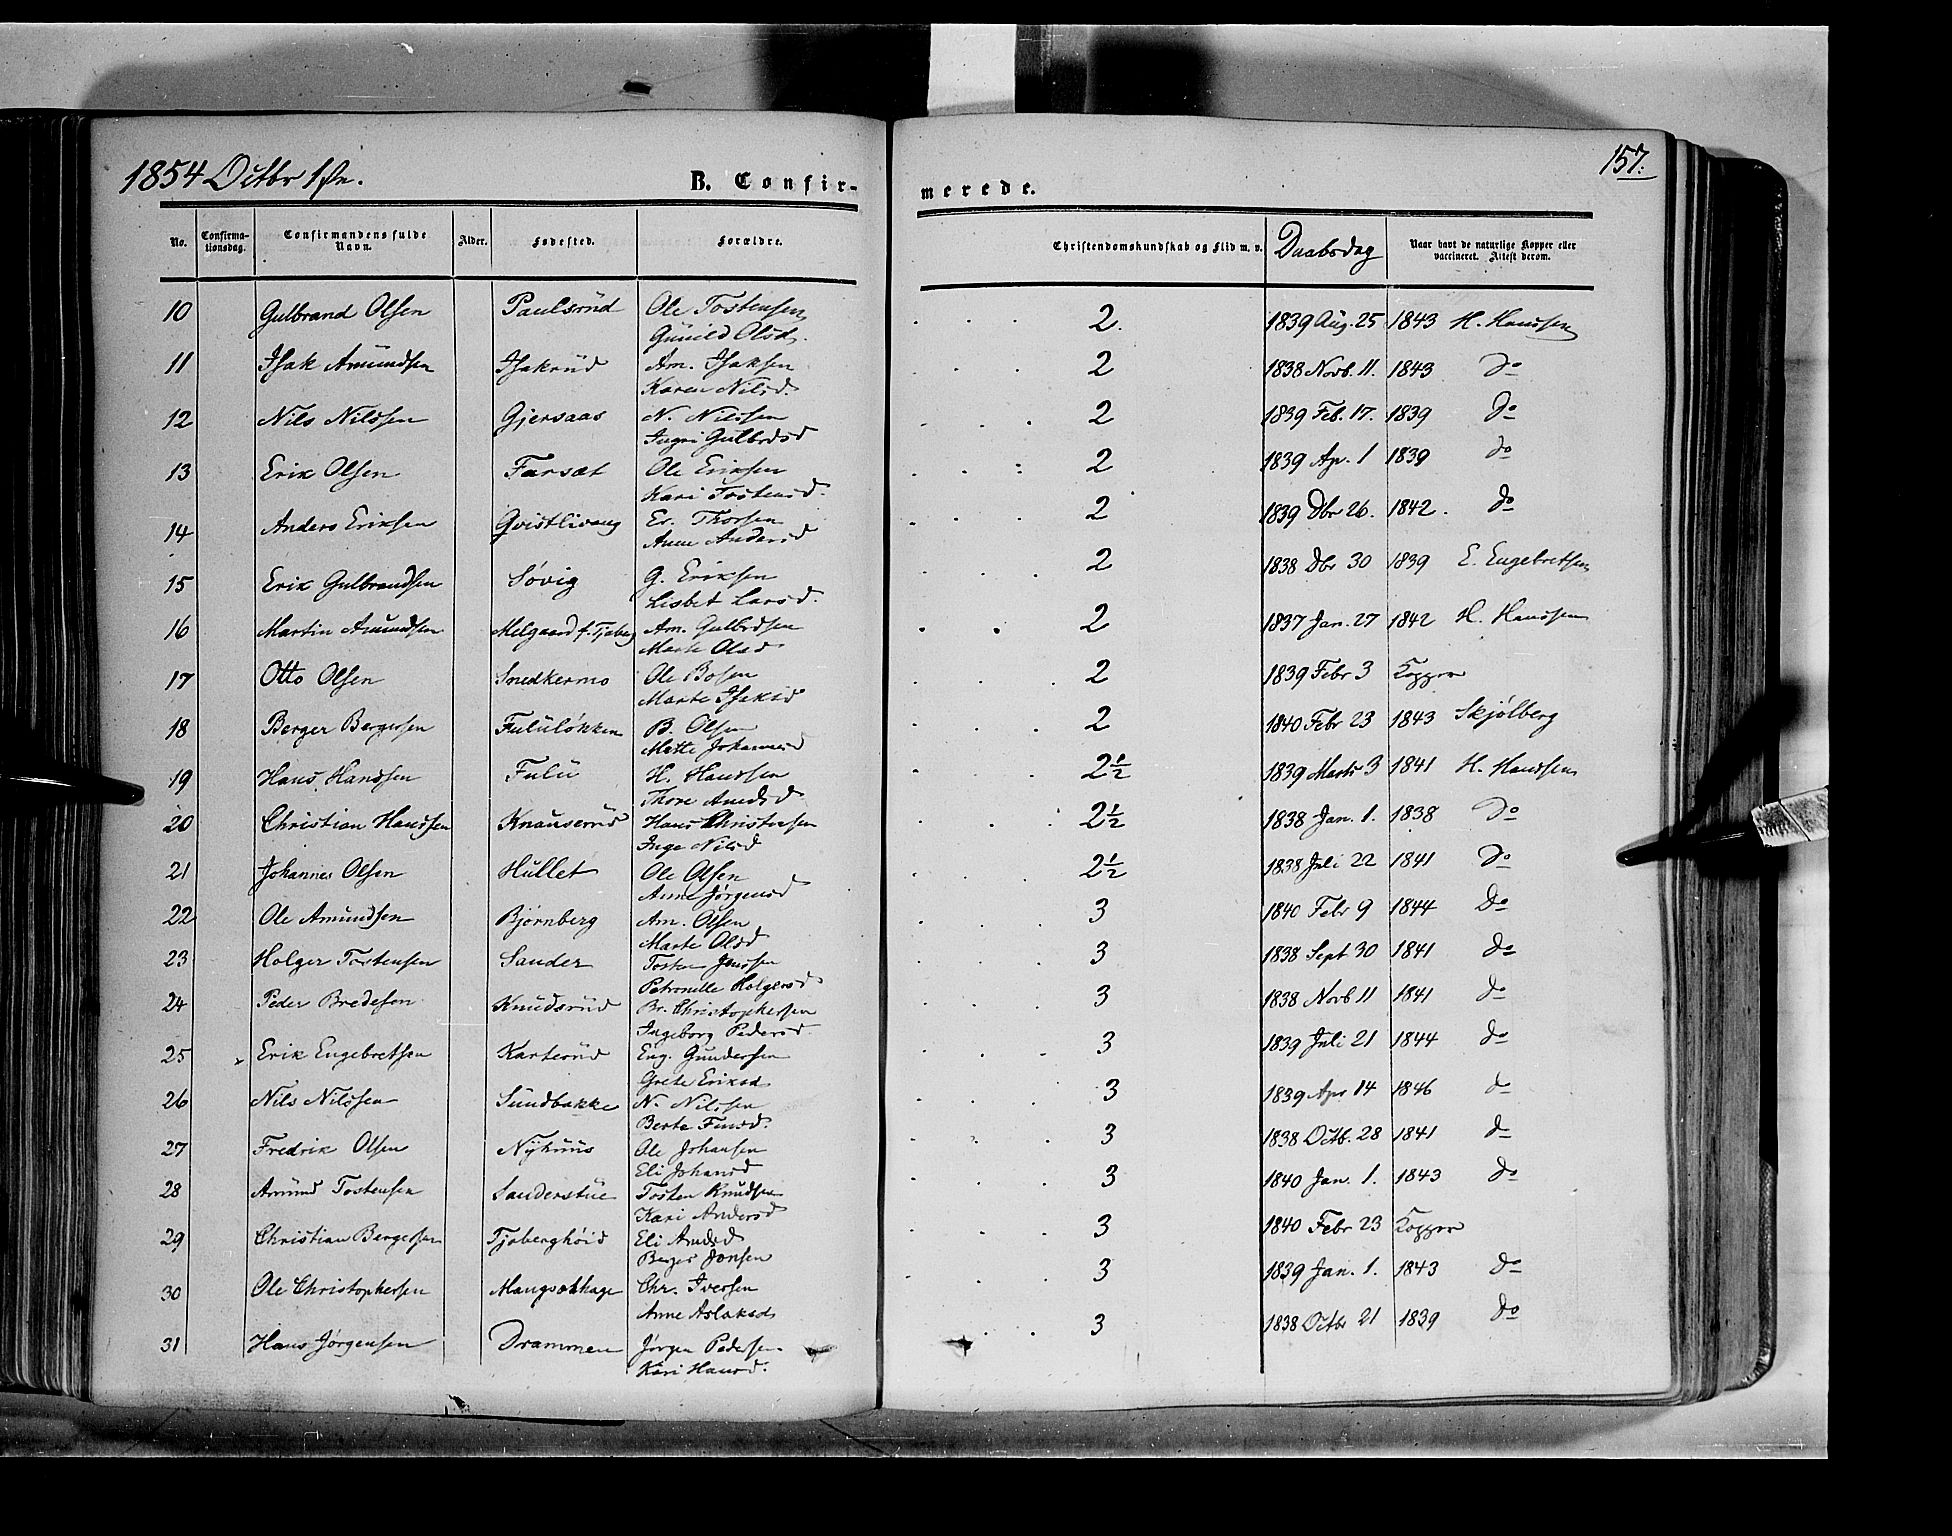 1854 Octbr 1ste.
B. Confir-
merede.
157.
No. Confirma-tionsdag. Confirmandens fulde Navn. Alder. Fødested. Forældre. Christendomskundskab og Flid m. v. Daabsdag Naar havt de naturlige Kopper eller vaccineret. Attest derom.
10 Gulbrand Olsen Paulsrüd Ole Tostensen 2. 1839 Aug. 25 1843 H. Hanssen
Gunild Olsd.
11 Isak Amündsen Isakrüd Am. Isaksen 2 1838 Novb. 11. 1843 do
Karen Nilsd.
12 Nils Nilssen Gjersaas N. Nilssen 2 1839 Feb. 17. 1839 do
Ingri Gulbrdsd
13 Erik Olsen Farsæt Ole Eriksen 2 1839 Ap. 1 1839 do
Kari Tostensd.
14 Anders Eriksen Qvistlivang Er. Thorsen 2 1839 Dbr 26. 1842. do
Anne Andersd
15 Erik Gulbrandsen Søvig G. Eriksen 2 1838 Dbr 30 1839 E. Engebretsen
Lisbet Larsd.
16 Martin Amundsen Melgaard f. Tjaberg Am. Gulbrdsen 2 1837 Jan. 27 1842 H. Hanssen
Marte Olsd
17 Otto Olsen Snedkermo Ole Bosen 2 1839 Febr 3 Kopper
Marte Isaksd
18 Berger Bergersen Fulüløkken B. Olsen 2 1840 Febr 23 1843 Skjølberg
Mette Johannesd
19 Hans Hanssen Fulü H. Hanssen 2½ 1839 Marts 3 1841 H. Hanssen
Thore Amdsd
20 Christian Hanssen Knauserüd Hans Christensen 2½ 1838 Jan. 1. 1838 Do
Inge Nilsd
21 Johannes Olsen Hullet Ole Olsen 2½ 1838 Juli 22 1841 do
Anne Jørgensd
22 Ole Amundsen Bjørnberg Am. Olsen 3 1840 Febr 9 1844 Do
Marte Olsd
23 Holger Tostensen Sander Tosten Jenssen 3 1838 Sept 30 1841 do
Petronille Holgersd
24 Peder Bredesen Knudsrüd Br. Christophersen 3 1838 Novb 11 1841 do
Ingeborg Pedersd
25 Erik Engebretsen Karterüd Eng. Gundersen 3 1839 Juli 21 1844 do
Grete Eriksd
26 Nils Nilssen Sundbakke N. Nilssen 3 1839 Apr 14 1846 do
Berte Finsd.
27 Fredrik Olsen Nyhüüs Ole Johansen 3 1838 Octb. 28 1841 do
Eli Johansd
28 Amünd Tostensen Sanderstüe Tosten Knudsen 3 1840 Jan. 1. 1843 do
Kari Andersd
29 Christian Bergersen Tjaberghøid Eli Amdsd 3 1840 Febr 23 Kopper
Berger Jonsen
30 Ole Christophersen Mangsethage Chr. Iversen 3 1839 Jan. 1. 1843 do
Anne Aslaksd
31 Hans Jørgensen Drammen Jørgen Pedersen 3 1838 Octbr 21 1839 do
Kari Hansd.